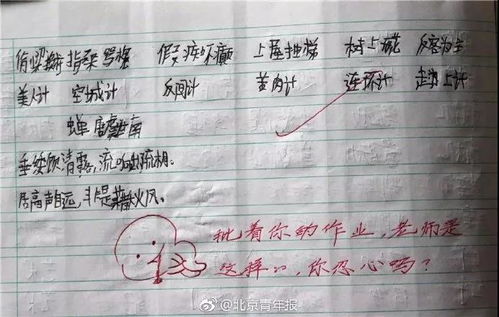 偷梁换柱 指桑骂槐 假痴不癫 上屋抽梯 树上 反客为主
美人计 空城计 反间计 苦肉计 连环计 走为上计
蝉 唐 虞世南
垂緌饮清露,流响出疏桐。
居高声自远,非是藉秋风。
批着你的作业,老师是
这样的,你忍心吗?
@北京青年报